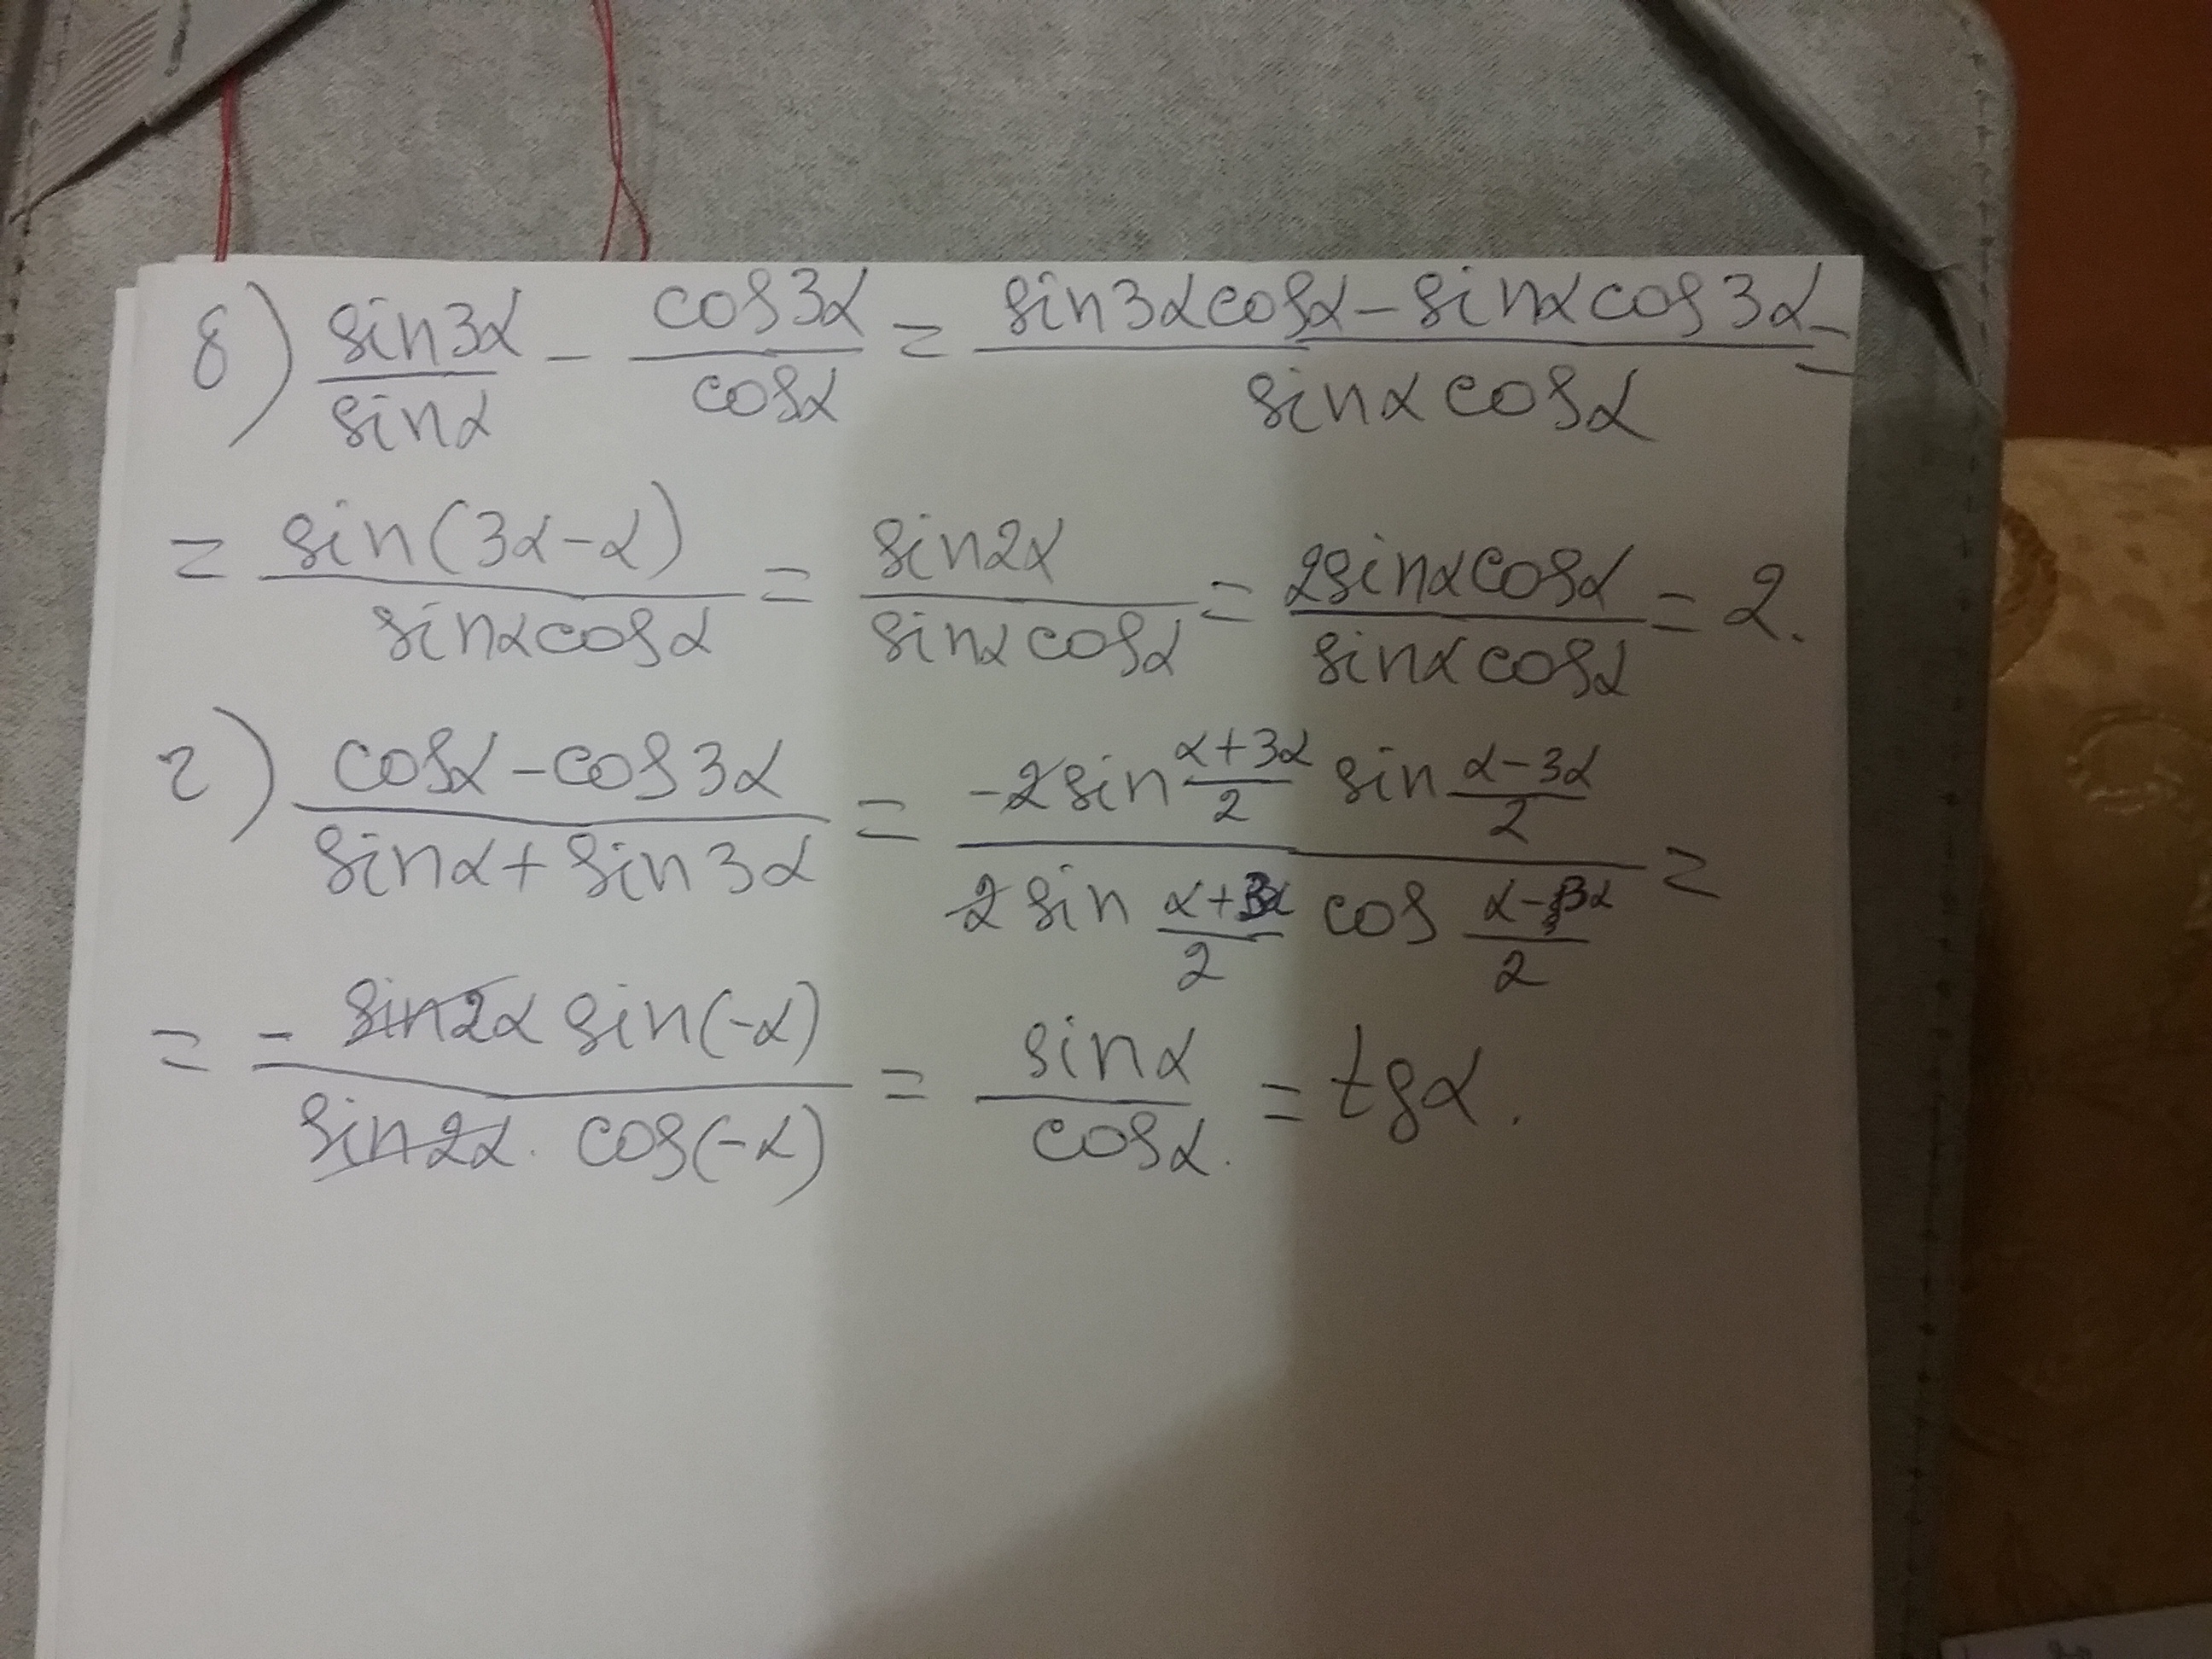 в) sin3α/sinα - cos3α/cosα = (sin3αcosα - sinαcos3α)/(sinαcosα) =
= sin(3α-α)/(sinαcosα) = sin2α/(sinαcosα) = 2sinαcosα/(sinαcosα) = 2.
г) (cosα - cos3α)/(sinα + sin3α) = (-2sin (α+3α)/2 sin (α-3α)/2)/(2sin (α+3α)/2 cos (α-3α)/2) =
= (- sin2α sin(-α))/(sin2α · cos(-α)) = sinα/cosα = tgα.